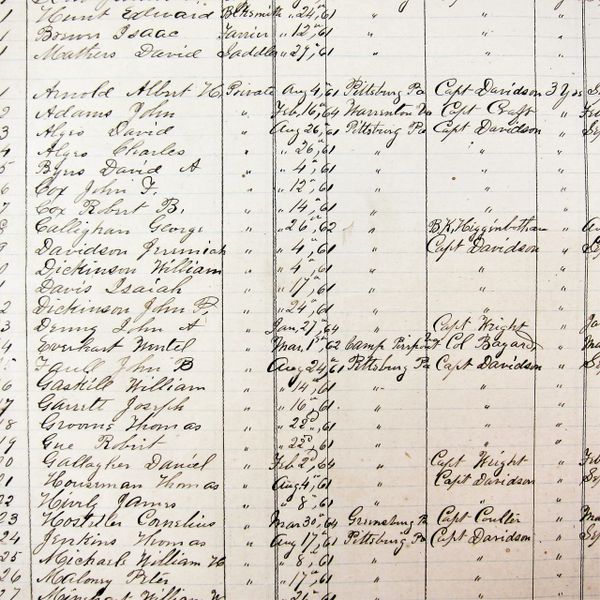 Hunt Edward Blksmith " 24, 61 " " "
1 Brown Isaac Farrier " 12, 61 " " "
1 Mathers David Saddler " 27, 61 " " "
1 Arnold Albert W. Private Aug 4, 61 Pittsburg Pa Capt Davidson 3 Yrs
2 Adams John " Feb 16, 64 Warrenton Capt Craft "
3 Algeo David " Aug 26, 61 Pittsburg Pa Capt Davidson "
4 Algeo Charles " " 26, 61 " " "
5 Byers David A " " 4, 61 " " "
6 Cox John F. " " 12, 61 " " "
7 Cox Robert B. " " 14, 61 " " "
8 Callaghan George " " 26, 62 " B.K. Higginbotham "
9 Davidson Jeremiah " " 4, 61 " Capt Davidson "
0 Dickinson William " " 4, 61 " " "
1 Davis Isaiah " " 17, 61 " " "
2 Dickinson John P. " " 24, 61 " " "
3 Denny John A " Jan, 27, 64 " Capt Wright "
4 Everhart " Mar, 1st 62 Camp Pierpont Col Bayard "
15 Farell John B " Aug 24, 61 Pittsburg Pa Capt Davidson "
16 Gaskill William " " 14, 61 " " "
17 Garrett Joseph " " 16, 61. " " "
18 Grooms Thomas " " 22d, 61 " " "
19 Gue Robert " " 22d, 61 " " "
20 Gallagher Daniel " Feb 2d, 64 " Capt Wright " Feb
21 Houseman Thomas " Aug 4, 61 " Capt Davidson "
22 Hively James " " 8, 61 " " "
23 Hostetler Cornelius " Mar 30, 64 Greensburg Pa Capt Coulter " Ma
24 Jenkins Thomas " Aug 17, 61 Pittsburg Pa Capt Davidson "
25 Michaels William H " " 8, 61 " " "
26 Malony Peter " " 17, 61 " " "
27 William